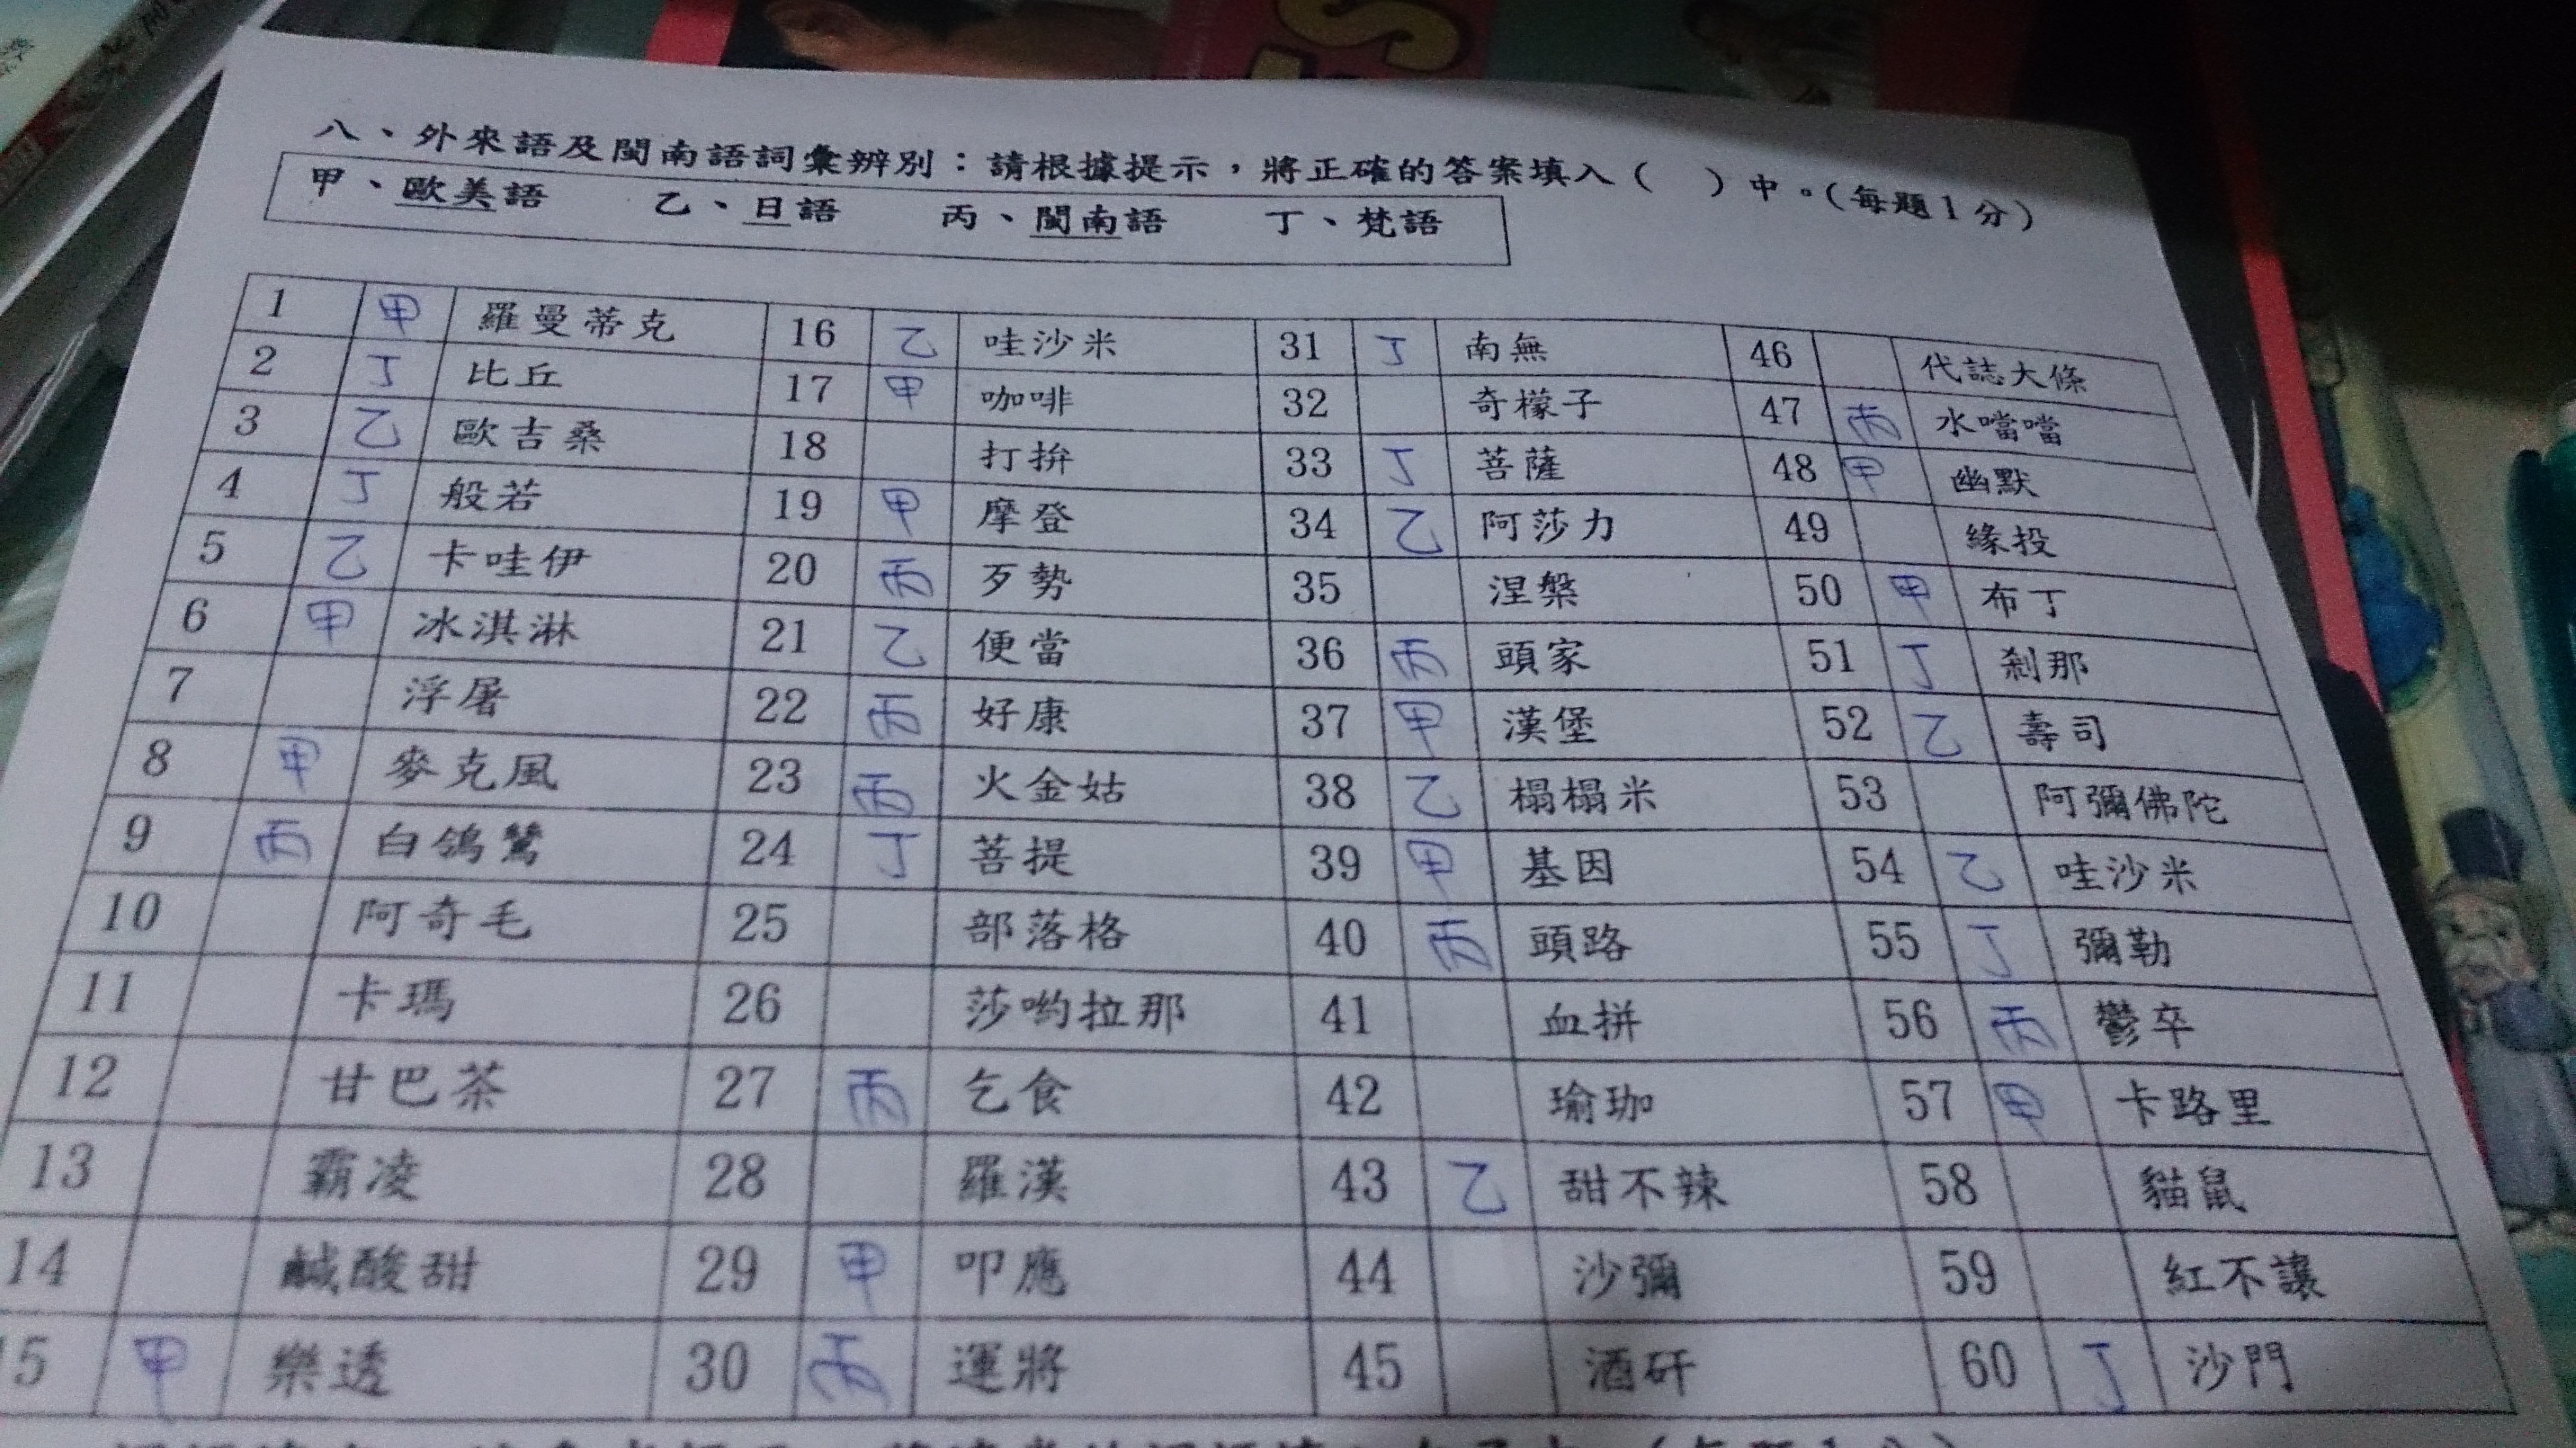 八、外來語及閩南語詞彙辨別：請根據提示，將正確的答案填入（　）中。（每題1分）
甲、歐美語　乙、日語　丙、閩南語　丁、梵語
1 甲 羅曼蒂克 16 乙 哇沙米 31 丁 南無 46 代誌大條
2 丁 比丘 17 甲 咖啡 32 奇檬子 47 丙 水噹噹
3 乙 歐吉桑 18 打拚 33 丁 菩薩 48 甲 幽默
4 丁 般若 19 甲 摩登 34 乙 阿莎力 49 緣投
5 乙 卡哇伊 20 丙 歹勢 35 涅槃 50 甲 布丁
6 甲 冰淇淋 21 乙 便當 36 丙 頭家 51 丁 剎那
7 浮屠 22 丙 好康 37 甲 漢堡 52 乙 壽司
8 甲 麥克風 23 丙 火金姑 38 乙 榻榻米 53 阿彌佛陀
9 丙 白鴒鷥 24 丁 菩提 39 甲 基因 54 乙 哇沙米
10 阿奇毛 25 部落格 40 丙 頭路 55 丁 彌勒
11 卡瑪 26 莎喲拉那 41 血拼 56 丙 鬱卒
12 甘巴茶 27 丙 乞食 42 瑜珈 57 甲 卡路里
13 霸凌 28 羅漢 43 乙 甜不辣 58 貓鼠
14 鹹酸甜 29 甲 叩應 44 沙彌 59 紅不讓
15 甲 樂透 30 丙 運將 45 酒矸 60 丁 沙門